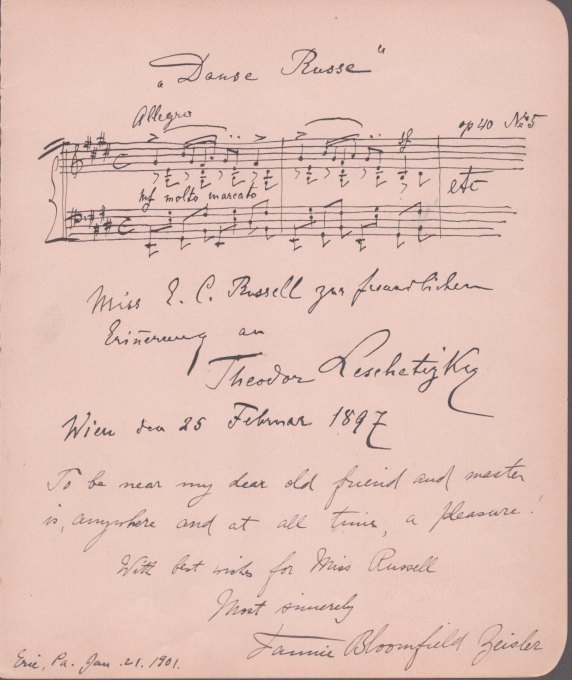 „Danse Russe"
Allegro
op 40 No 5
mf molto marcato
etc
Miss E. C. Russell zur freundlichen
Erin̄erung an
Theodor Leschetizky
Wien den 25 Februar 1897
To be near my dear old friend and master
is, anywhere and at all times, a pleasure!
With best wishes for Miss Russell
Most sincerely
Fannie Bloomfield Zeisler
Erie, Pa. Jan. 21. 1901.